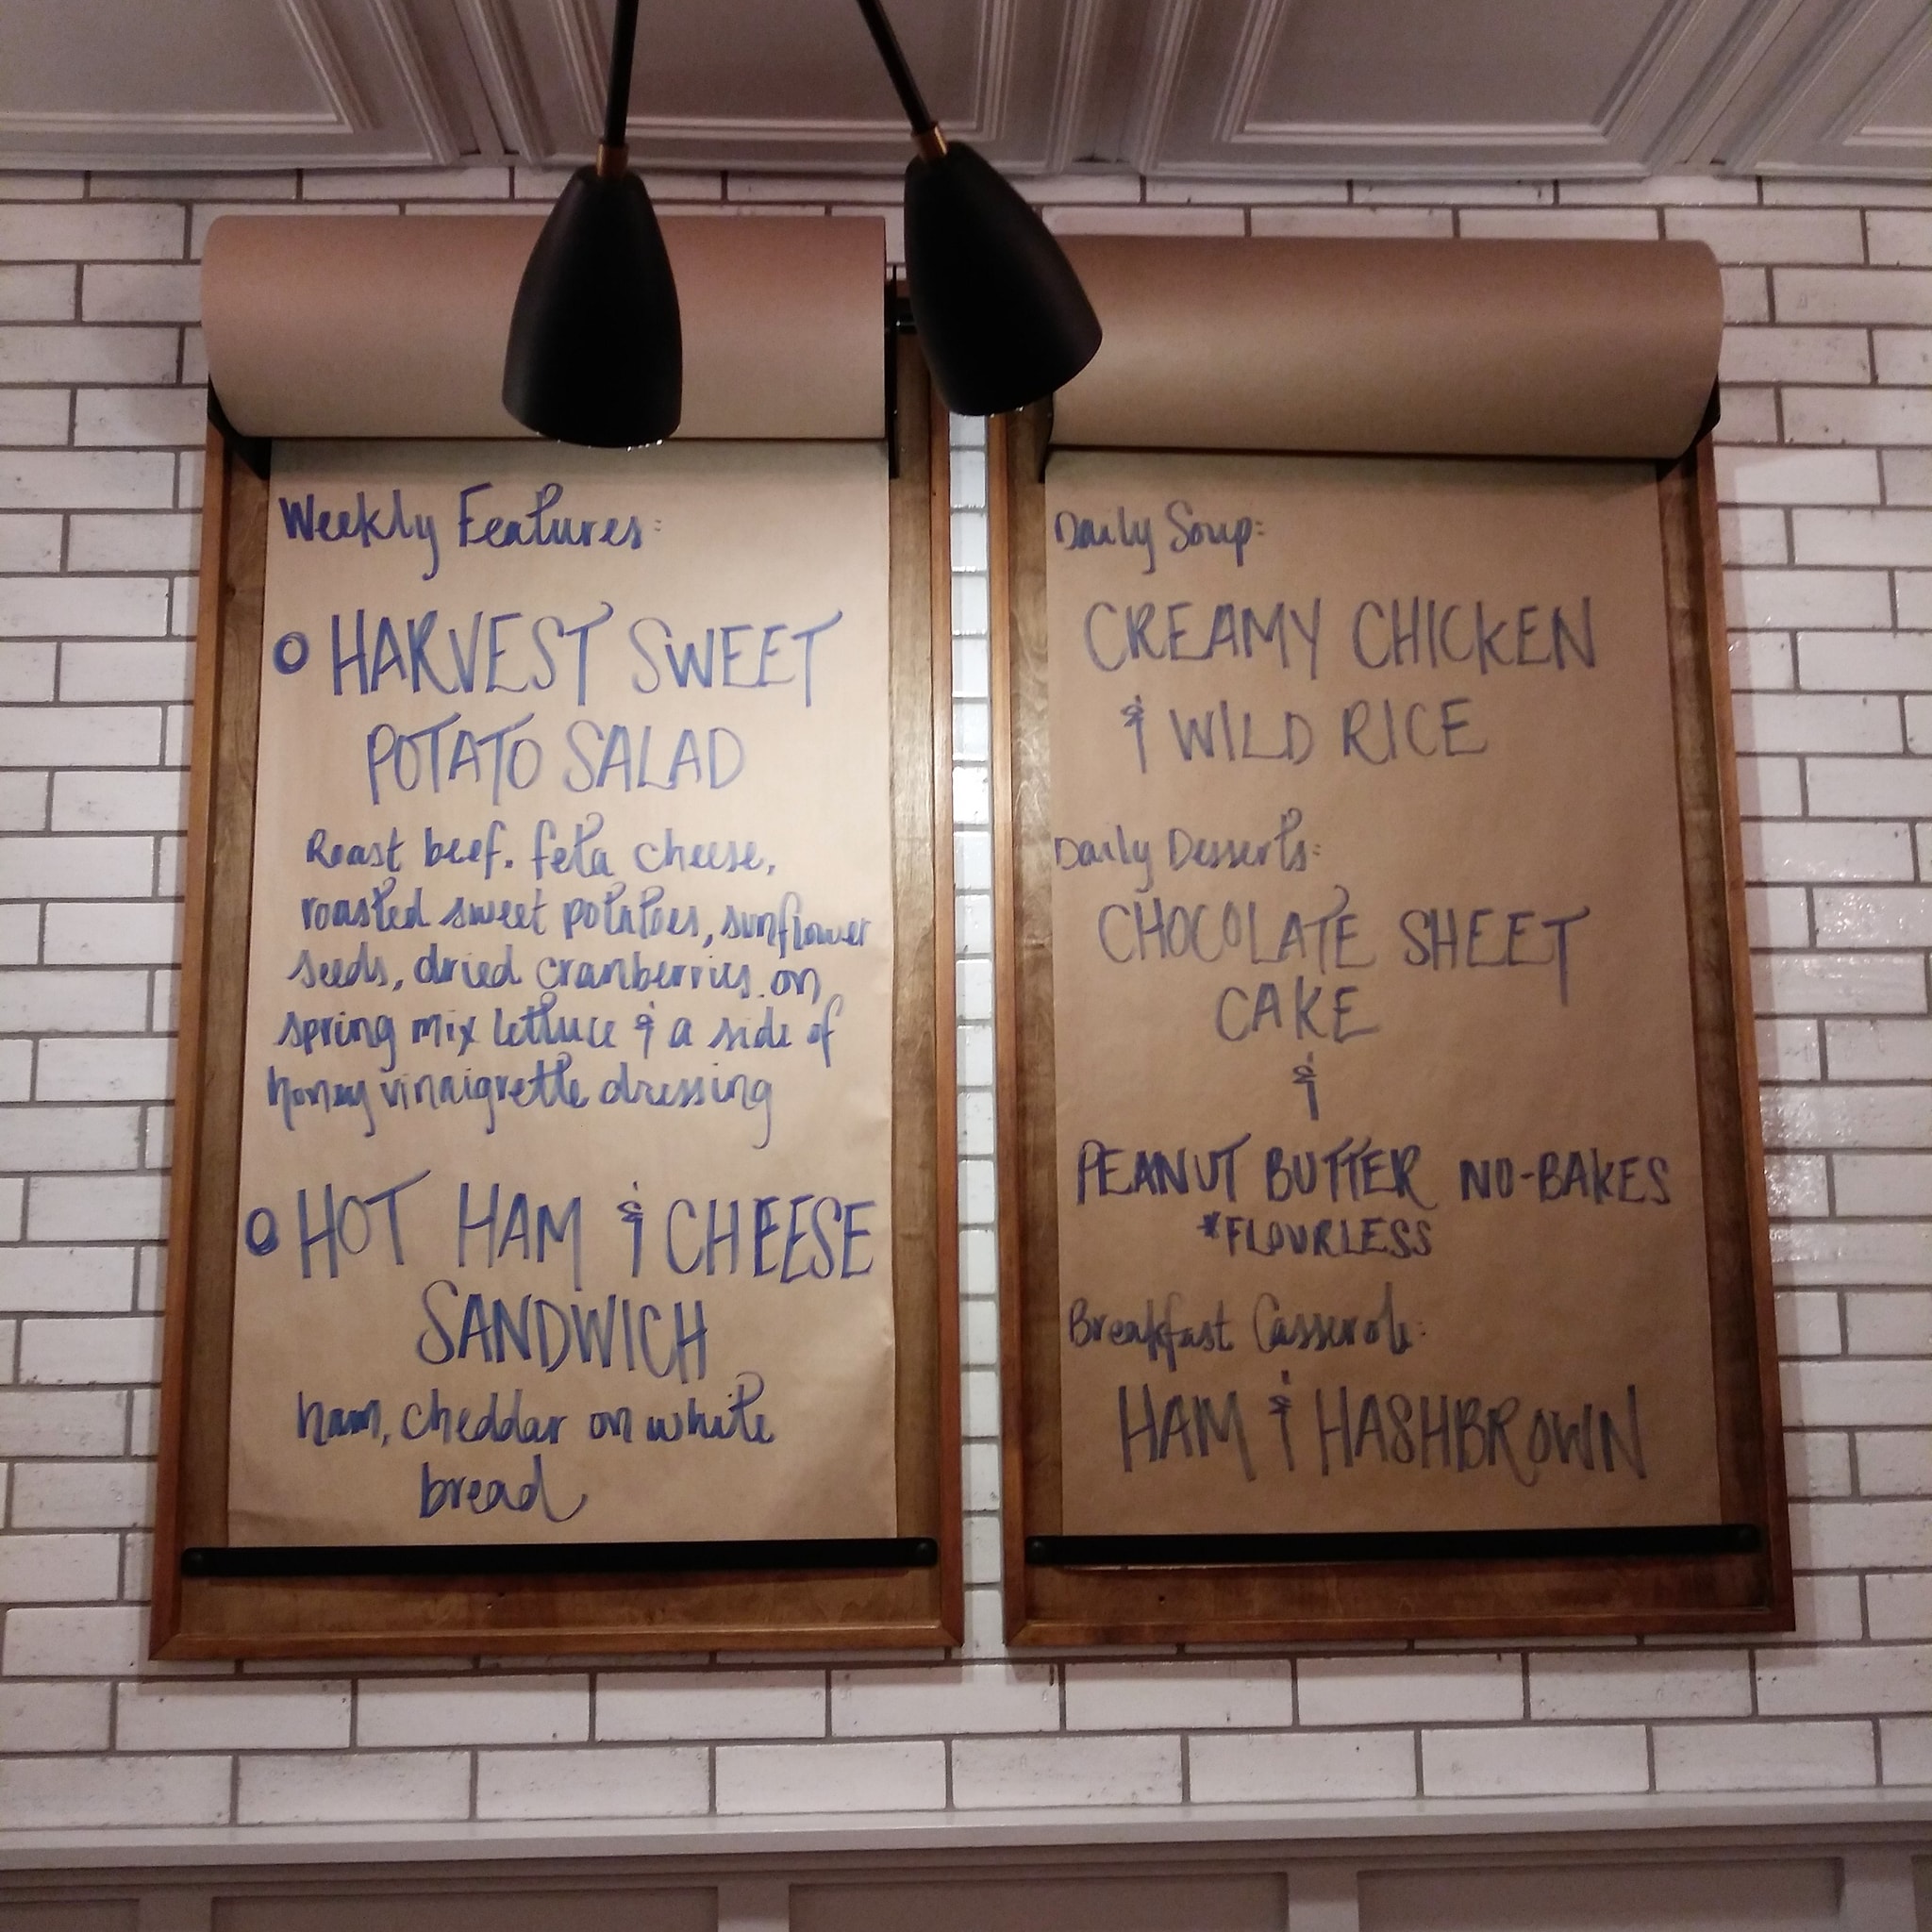 Weekly Features:
O HARVEST SWEET
POTATO SALAD
Roast beef, feta cheese,
roasted sweet potatoes, sunflower
seeds, dried cranberries on
spring mix lettuce & a side of
honey vinaigrette dressing
O HOT HAM & CHEESE
SANDWICH
ham, cheddar on white
bread
Daily Soup:
CREAMY CHICKEN
& WILD RICE
Daily Desserts:
CHOCOLATE SHEET
CAKE
&
PEANUT BUTTER NO-BAKES
*FLOURLESS
Breakfast Casserole:
HAM & HASHBROWN